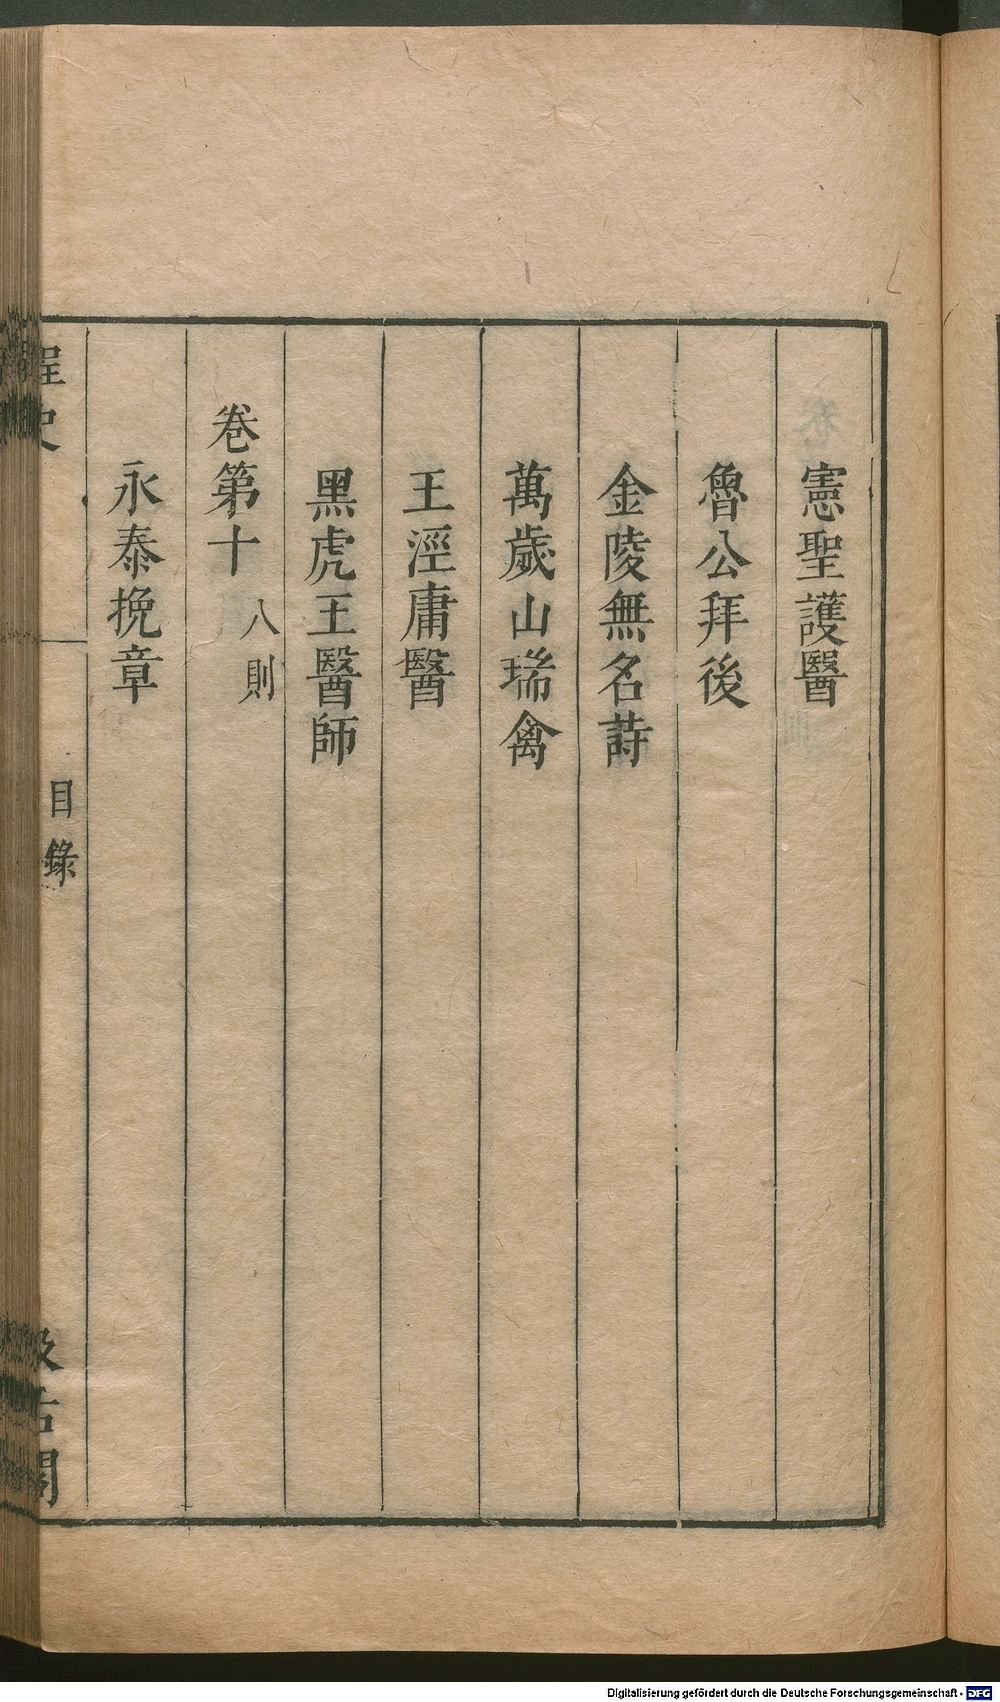 憲聖護醫
魯公拜後
金陵無名詩
萬歲山瑞禽
王涇庸醫
黑虎王醫師
卷第十 八則
永泰挽章
桯史
目錄
汲古閣
Digitalisierung gefördert durch die Deutsche Forschungsgemeinschaft - DFG